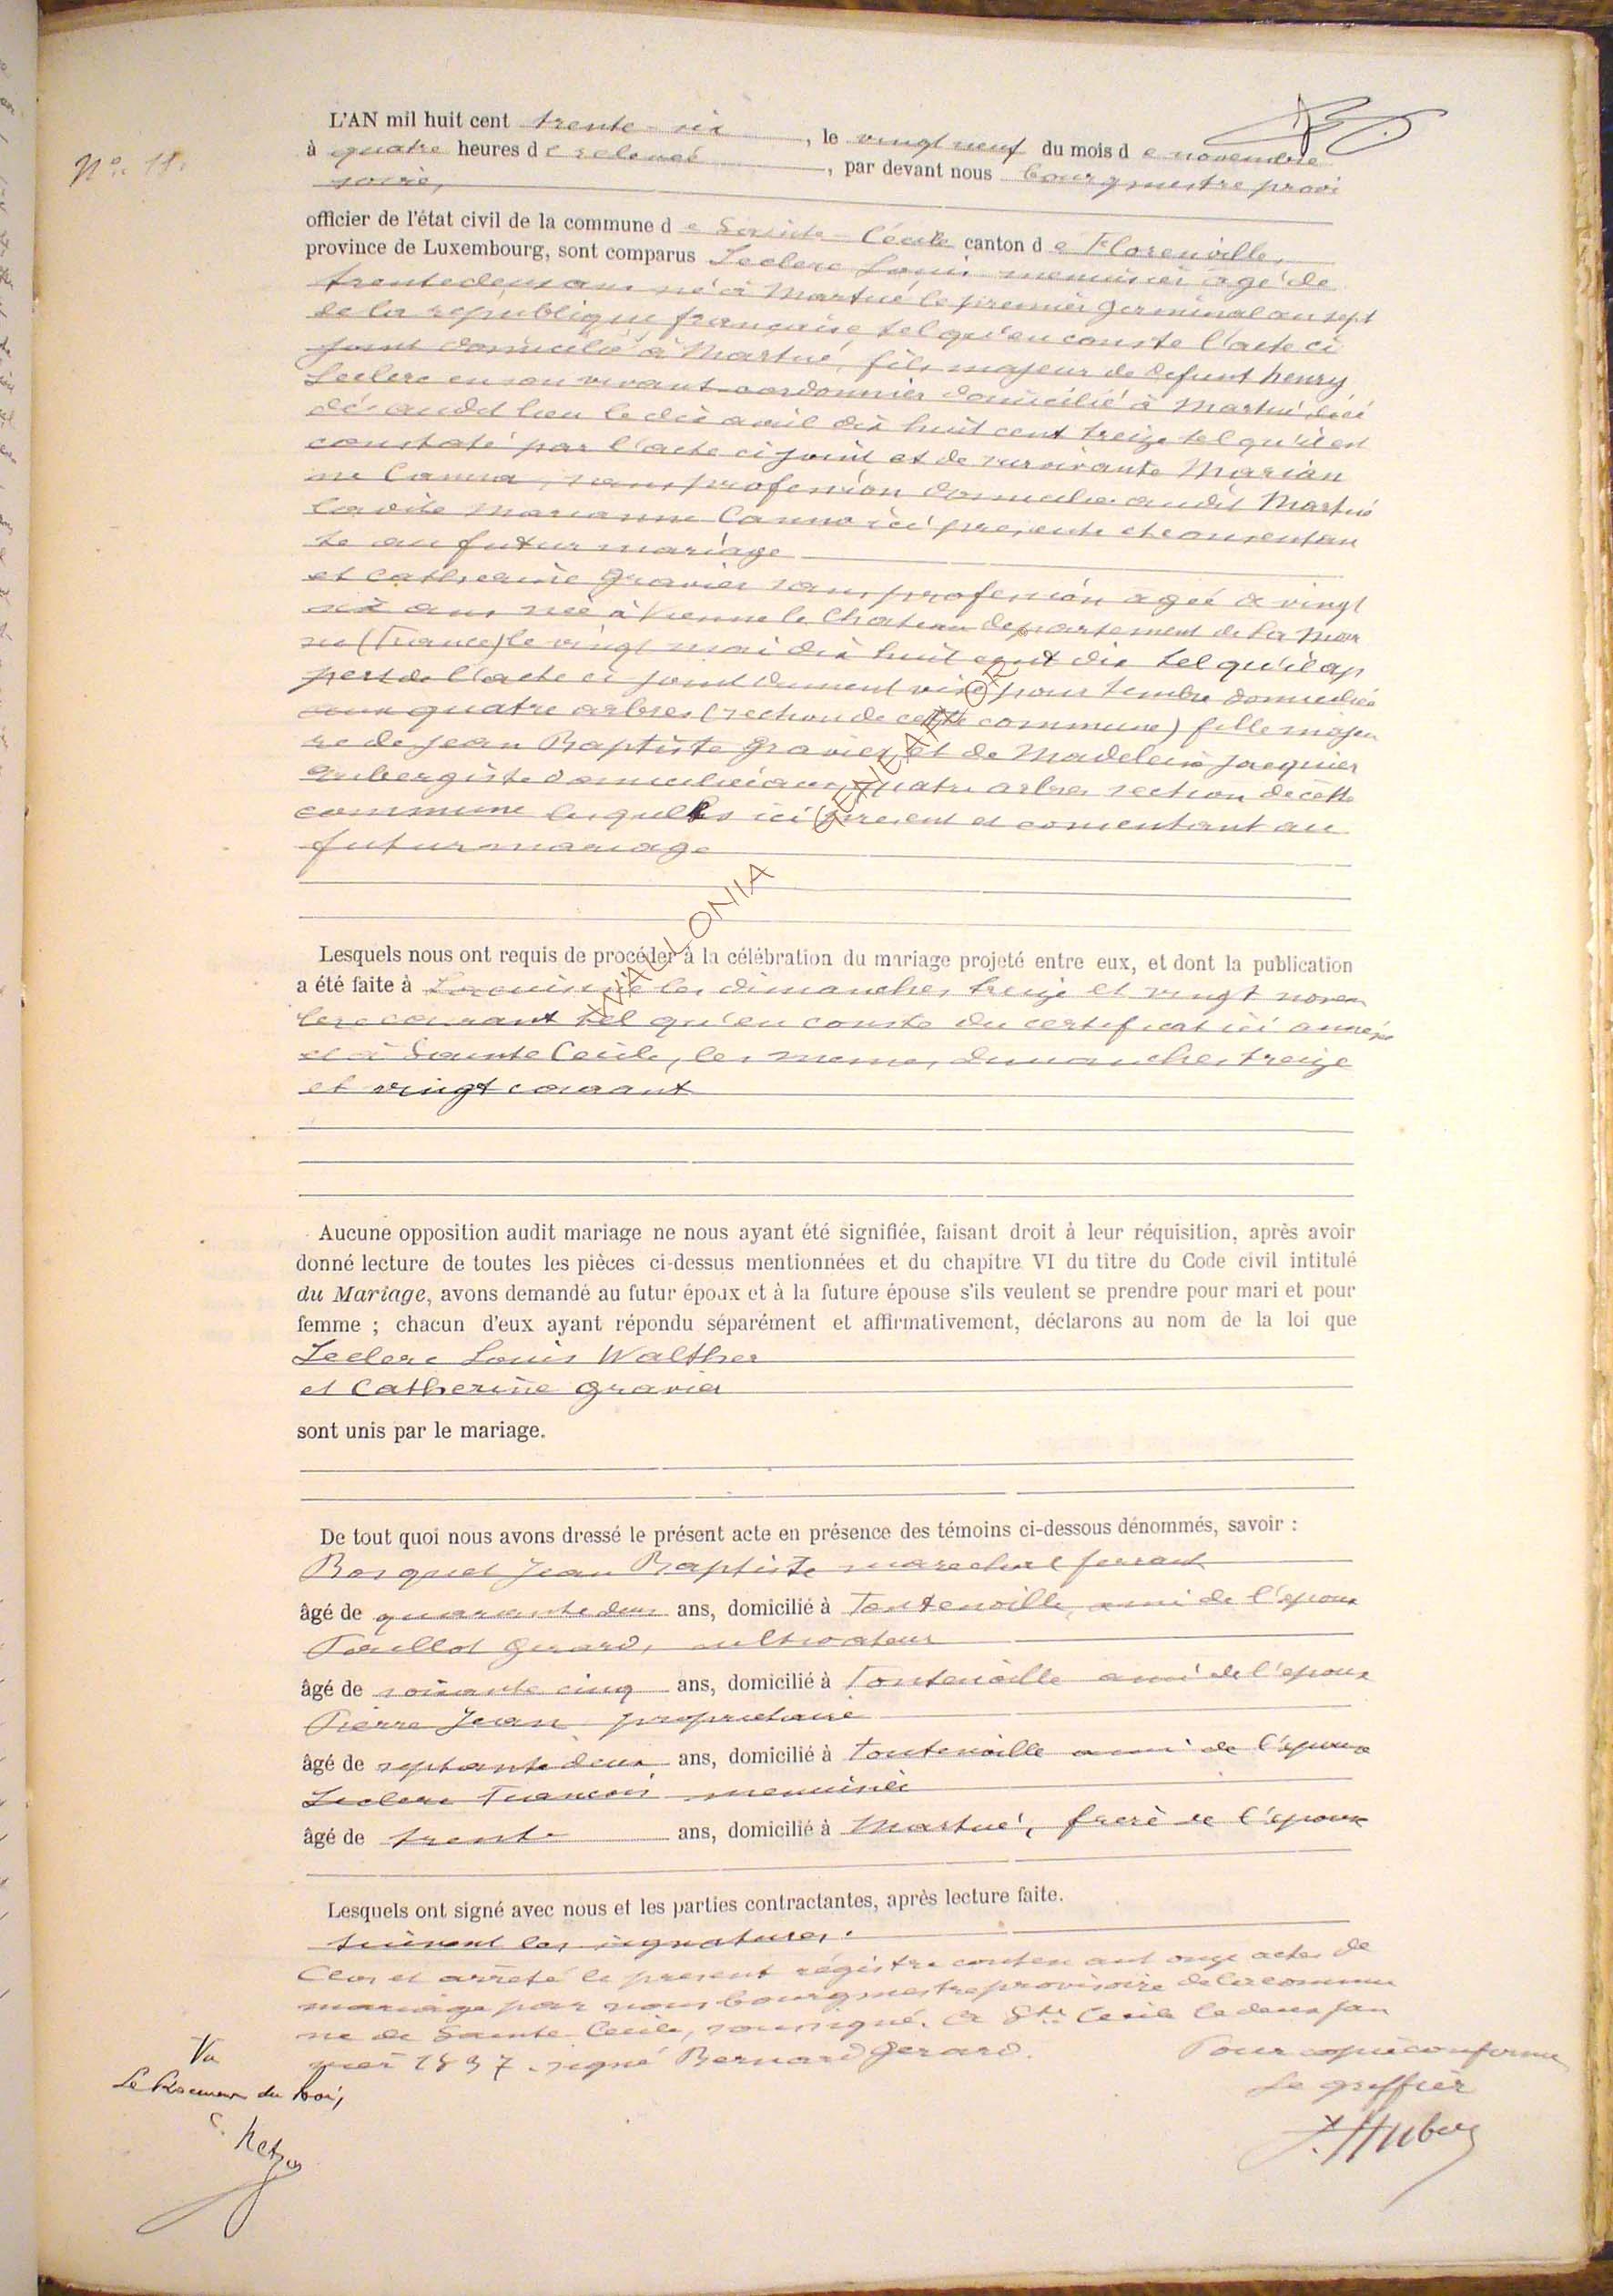 N° 11.
L'AN mil huit cent trente-six, le vingt neuf du mois de novembre
à quatre heures de relevée, par devant nous bourgmestre provi
soire,
officier de l'état civil de la commune de Sainte-Cécile canton de Florenville,
province de Luxembourg, sont comparus Leclerc Louis menuisier agé de
trente deux ans né à Martué le premier germinal an sept
de la république française tel qu'en conste l'acte ci
joint domicilié à Martué, fils majeur de defunt henry
Leclerc en son vivant cordonnier domicilié à Martué décé
dé audit lieu le dix avril dix huit cent treize tel qu'il est
constaté par l'acte ci joint et de survivante Marian
ne Canna, sans profession domiciliée audit Martué
la dite Marianne Canna ici présente et consentan
te au futur mariage
et Catherine Gravier sans profession agée de vingt
six ans née à Vienne le Chateau departement de la Mar
ne (France) le vingt mai dix huit cent dix tel qu'il ap
pert de l'acte ci joint dument visé pour timbre domiciliée
aux quatre arbres (section de cette commune) fille majeu
re de Jean Baptiste Gravier et de Madeleine Jacquier
aubergiste domiciliés aux quatre arbres section de cette
commune lesquels ici présent et consentant au
futur mariage
WALLONIA GENEANET.ORG
Lesquels nous ont requis de procéder à la célébration du mariage projeté entre eux, et dont la publication
a été faite à Lacuisine les dimanches treize et vingt novem
bre courant tel qu'en conste du certificat ici annéxé
et à Sainte Cécile, les memes dimanches treize
et vingt courant
Aucune opposition audit mariage ne nous ayant été signifiée, faisant droit à leur réquisition, après avoir
donné lecture de toutes les pièces ci-dessus mentionnées et du chapitre VI du titre du Code civil intitulé
du Mariage, avons demandé au futur époux et à la future épouse s'ils veulent se prendre pour mari et pour
femme ; chacun d'eux ayant répondu séparément et affirmativement, déclarons au nom de la loi que
Leclerc Louis Walther
et Catherine Gravier
sont unis par le mariage.
De tout quoi nous avons dressé le présent acte en présence des témoins ci-dessous dénommés, savoir :
Bosquet Jean Baptiste marechal ferrant
âgé de quarante deux ans, domicilié à Fontenoille, ami de l'epoux
Pouillot Gerard, cultivateur
âgé de soixante cinq ans, domicilié à Fontenoille ami de l'epoux
Pierre Jean proprietaire
âgé de septante deux ans, domicilié à Fontenoille ami de l'epoux
Leclerc Francois menuisier
âgé de trente ans, domicilié à Martué, frere de l'epoux
Lesquels ont signé avec nous et les parties contractantes, après lecture faite.
suivent les signatures.
Clos et arreté le present régistre contenant onze actes de
mariage par nous bourgmestre provisoire de la commu
ne de Sainte-Cécile, soussigné. A Ste Cécile le deux jan
vier 1837. signé Bernard Gerard.
Pour copie conforme
Le greffier
J. Hubert
Vu
Le Procureur du Roi,